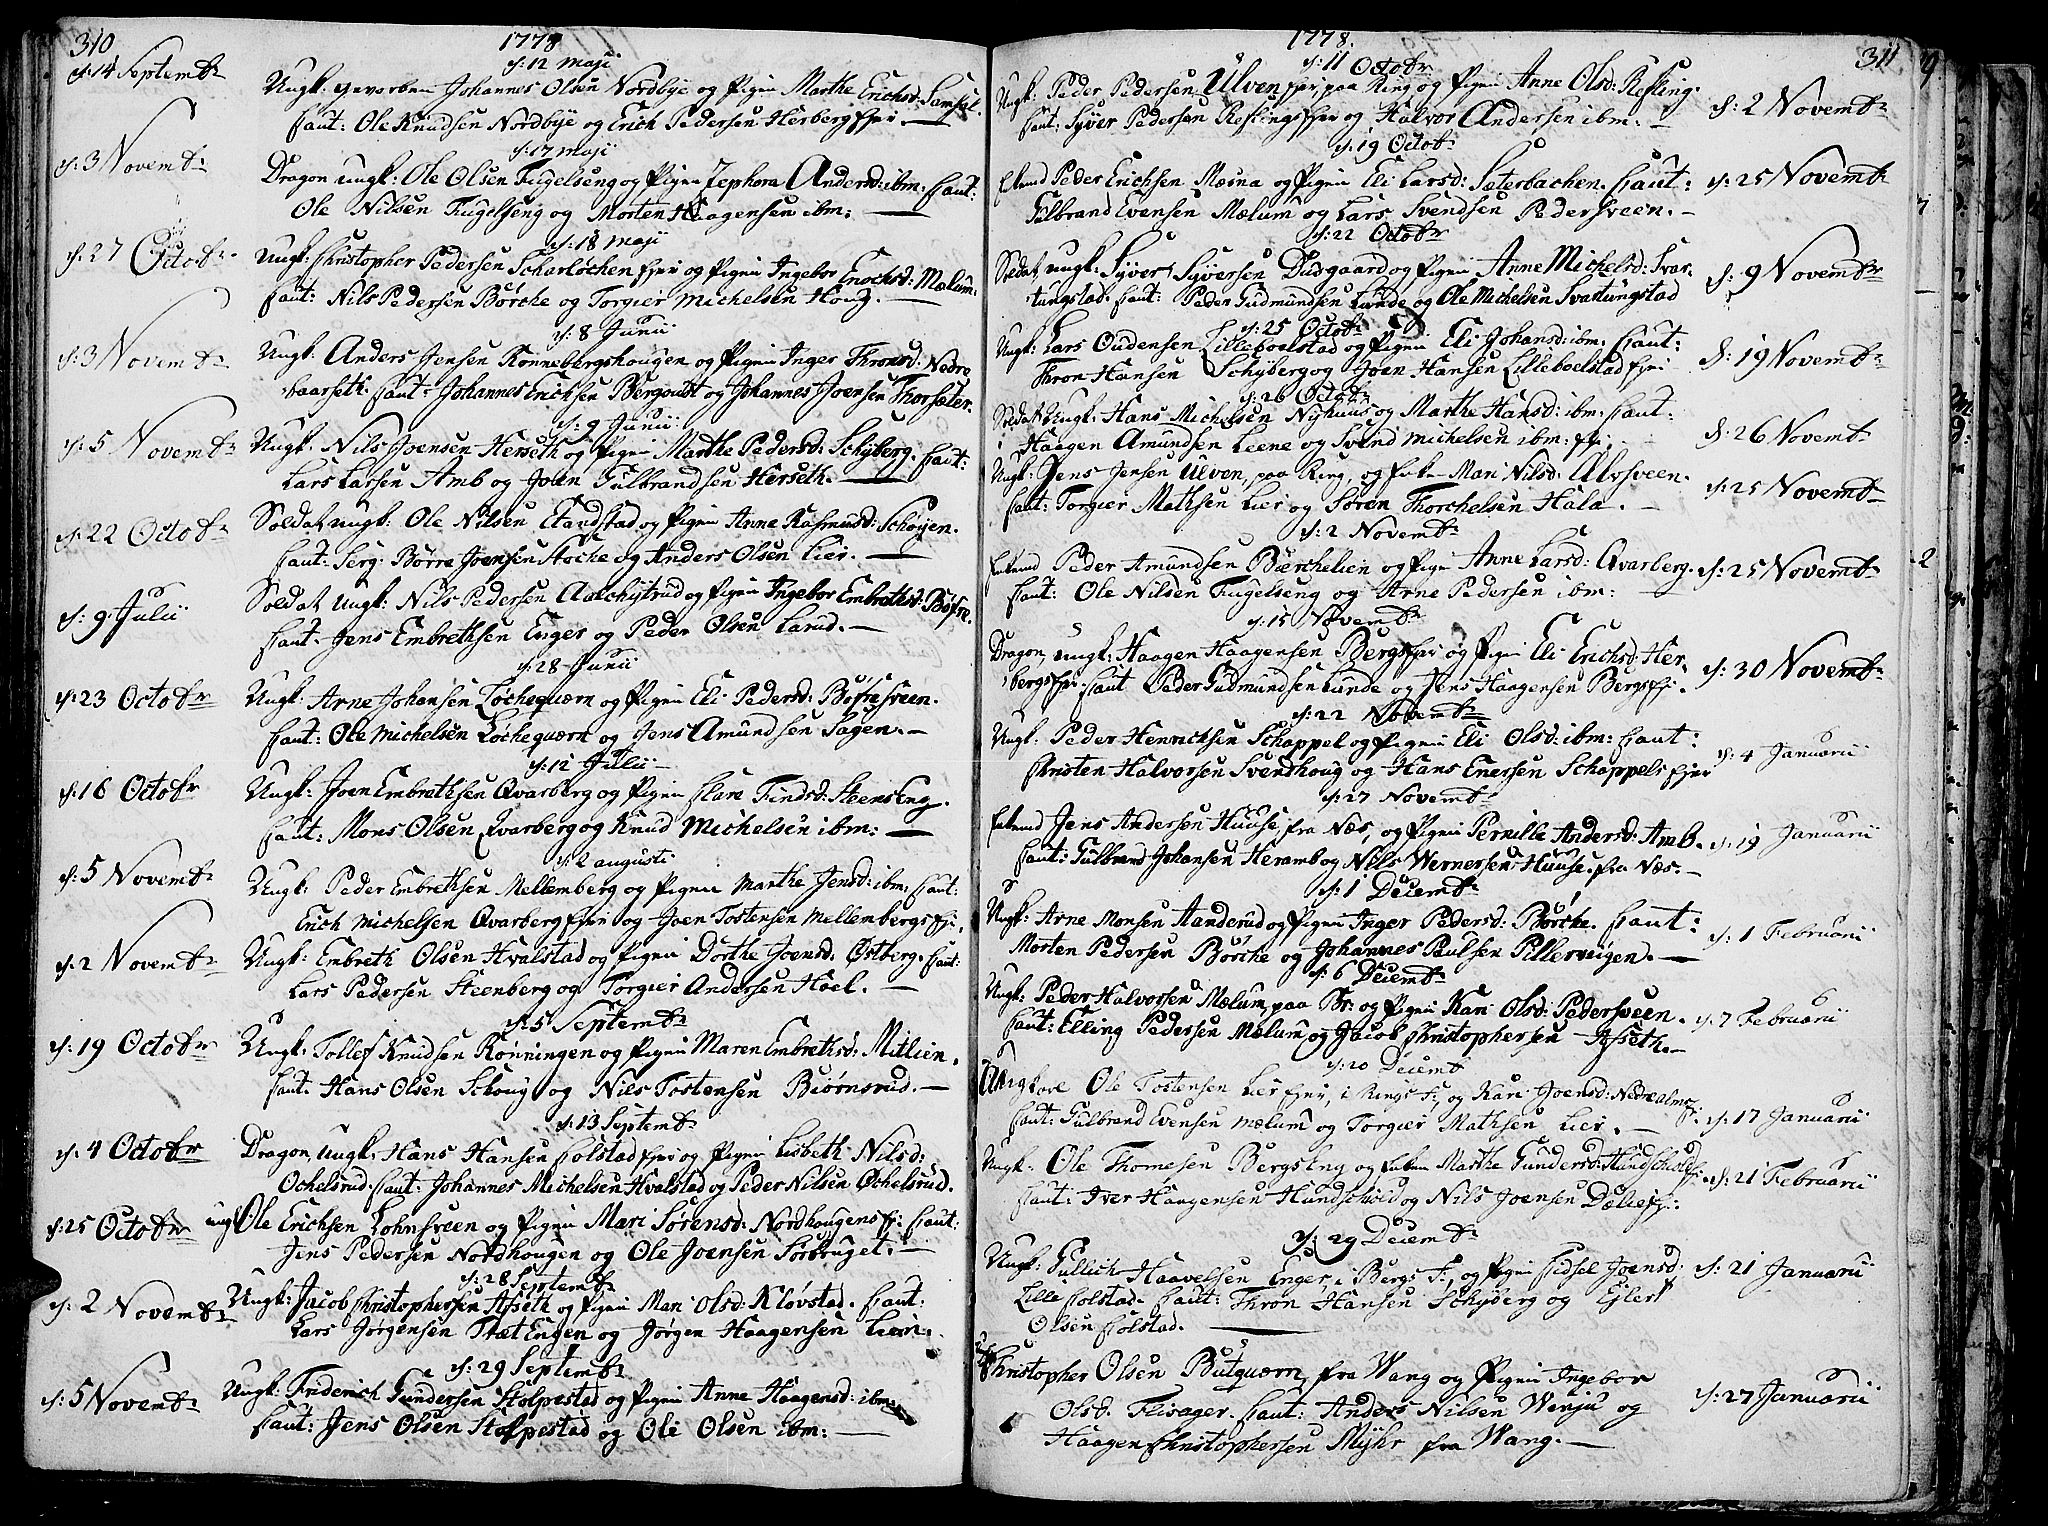 310
1778
d: 12 Maji
d: 14 Septembr
Ungk: gevorben Johannes Olsen Nordbye og Pigen Marthe Erichsd: Samsal.
Caut: Ole Knudsen Nordbye og Erich Pedersen Herberg Ejer.
d: 17 Maji
d: 3 Novembr
Dragon Ungk: Ole Olsen Fugelseng og Pigen Zephora Andersd: ibm: Caut:
Ole Nilsen Fugelseng og Morten Haagensen ibm:
d: 18 Maji
d: 27 Octobr
Ungk: Christopher Pedersen Scharløchen Ejer og Pigen Ingebor Enochsd: Mælum.
Caut: Nils Pedersen Børche og Torgier Michelsen Houg.
d: 8 Junii
d: 3 Novembr
Ungk: Anders Jensen Rønnebergshougen og Pigen Inger Thronsd: Nedre
baarseth. Caut: Johannes Erichsen Bergondt og Johannes Joensen Thorsæter.
d: 9 Junii
d: 5 Novembr
Ungk: Nils Joensen Herseth og Pigen Marthe Pedersd: Schyberg. Caut:
Lars Larsen Amb og Joen Gulbrandsen Herseth.
d: 22 Octobr
Soldat Ungk: Ole Nilsen Standstad og Pigen Anne Rasmusd: Schøyen.
Caut: Serg: Børre Joensen Stoche og Anders Olsen Lier.
d: 9 Julii
Soldat Ungk: Nils Pedersen Aalchytrud og Pigen Ingebor Embrethsd: Bøfre.
Caut: Jens Embrethsen Enger og Peder Olsen Larud.
d: 28 Junii
d: 23 Octobr
Ungk: Arne Johansen Løchequærn og Pigen Eli Pedersd: Bøfresveen.
Caut: Ole Michelsen Løchequærn og Jens Amundsen Sagen.
d: 12 Julii
d: 16 Octobr
Ungk: Joen Embrethsen Qvarberg og Pigen Clare Findsd: SteensEng.
Caut: Mons Olsen Qvarberg og Knud Michelsen ibm:
d: 2 augusti
d: 5 Novembr
Ungk: Peder Embrethsen Mellemberg og Pigen Marthe Jensd: ibm: Caut:
Erich Michelsen Qvarberg Ejer og Joen Tostensen Mellembergs Ej:
d: 2 Novembr
Ungk: Embreth Olsen Hvalstad og Pigen Dorthe Joensd: Østberg. Caut:
Lars Pedersen Steenberg og Torgier Andersen Hoel.
d: 5 Septembr
d: 19 Octobr
Ungk: Tollef Knudsen Rønningen og Pigen Maren Embrethsd: Mitlien.
Caut: Hans Olsen Schoug og Nils Tostensen Biørnsrud.
d: 13 Septembr
d: 4 Octobr
Dragon, Ungk: Hans Hansen Colstad Ejer og Pigen Lisbeth Nilsd:
Ochelsrud. Caut: Johannes Michelsen Hvalstad og Peder Nilsen Øchelsrud.
d: 25 Octobr
ungk Ole Erichsen Lohnsveen og Pigen Mari Sørensd: Nordhougens Ej: Caut:
Jens Pedersen Nordhougen og Ole Joensen Sørbruget.
d: 28 Septembr
d: 2 Novembr
Ungk: Jacob Christophersen Afseth og Pigen Mari Olsd: Kløvstad. Caut:
Lars Jørgensen StætEngen og Jørgen Haagensen Lien.
d: 29 Septembr
d: 5 Novembr
Ungk: Friderich Gundersen Stolpestad og Pigen Anne Haagensd: ibm:
Caut: Jens Olsen Stolpestad og Ole Olsen ibm:
311
1778.
d: 11 Octobr
Ungk: Peder Pedersen Ulven Ejer, paa Ring og Pigen Anne Olsd: Refling.
d: 2 Novembr
Caut: Syver Pedersen Reflings Ejer og Halvor Andersen ibm:
d: 19 Octobr
Enkemd Peder Erichsen Mæsna og Pigen Eli Larsd: Sæterbachen. Caut:
d: 25 Novembr
Gulbrand Evensen Mælum og Lars Svendsen Pedersveen.
d: 22 Octobr
Soldat, Ungk: Syver Syversen Dusgaard og Pigen Anne Michelsd: Svar-
d: 9 Novembr
tungstad. Caut: Peder Gudmundsen Lunde og Ole Michelsen Svartungstad
d: 25 Octobr
Ungk: Lars Oudensen Lilleboelstad og Pigen Eli Johansd: ibm: Caut:
d: 19 Novembr
Thron Hansen Schyberg og Joen Hansen Lilleboelstad Ejer
d: 26 Octobr
Soldat Ungk: Hans Michelsen Nyhuus og Marthe Hansd: ibm: Caut:
d: 26 Novembr
Haagen Amundsen Leene og Svend Michelsen ibm: Ej:
Ungk: Jens Jensen Ulven, paa Ring, og Enken Mari Nilsd: Ulvsveen.
d: 25 Novembr
Caut: Torgier Mathsen Lier og Søren Thorchelsen Hala.
d: 2 Novembr
Enkemd Peder Amundsen Bærchelien og Pigen Anne Larsd: Qvarberg.
d: 25 Novembr
Caut: Ole Nilsen Fugelseng og Arne Pedersen ibm:
d: 15 Novembr
Dragon, Ungk: Haagen Haagensen Bergs Ejer og Pigen Eli Erichsd: Her-
d: 30 Novembr
bergs Ejer. Caut Peder Gudmundsen Lunde og Jens Haagensen Bergs Ej:
d: 22 Novembr
Ungk: Peder Henricksen Schappel og Pigen Eli Olsd: ibm: Caut:
d: 4 Januarii
Christen Halvorsen Svendhoug og Hans Enersen Schappels Ejer
d: 27 Novembr
Enkemd Jens Andersen Huuse, fra Næs, og Pigen Pernille Andersd: Amb.
d: 19 Januarii
Caut: Gulbrand Johansen Heramb og Nils Wernersen Huuse, fra Næs.
d: 1 Decembr
Ungk: Arne Monsen Aanderud og Pigen Inger Pedersd: Børche. Caut:
d: 1 Februarii
Morten Pedersen Børche og Johannes Paulsen Pillerviigen.
d: 6 Decembr
Ungk: Peder Halvorsen Mælum, paa Br: og Pigen Kari Olsd: Pedersveen.
d: 7 Februarii
Caut: Elling Pedersen Mælum og Jacob Christophersen Afseth.
d: 20 Decembr
Ungkarl Ole Tostensen Lier Ejer, i Rings S:, og Kari Joensd: Nedre almes
d: 17 Januarii
Caut: Gulbrand Evensen Mælum og Torgier Mathsen Lier.
Ungk: Ole Thomesen BergsEng og Enken Marthe Gundersd: Hundschold Ej:
d: 21 Februarii
Caut: Iver Haagensen Hundschold og Nils Joensen Dælie Ej:
d: 29 Decembr
Ungk: Gullich Haavelsen Enger, i Bergs S:, og Pigen Sidsel Joensd:
d: 21 Januarii
Lille Colstad. Caut: Thron Hansen Schyberg og Ejlert
Olsen Colstad.
Christopher Olsen Butquærn, fra Wang og Pigen Ingebor
d: 27 Januarii
Olsd: Flisager. Caut: Anders Nilsen Wenju og
Haagen Christophersen Myhr fra Wang.